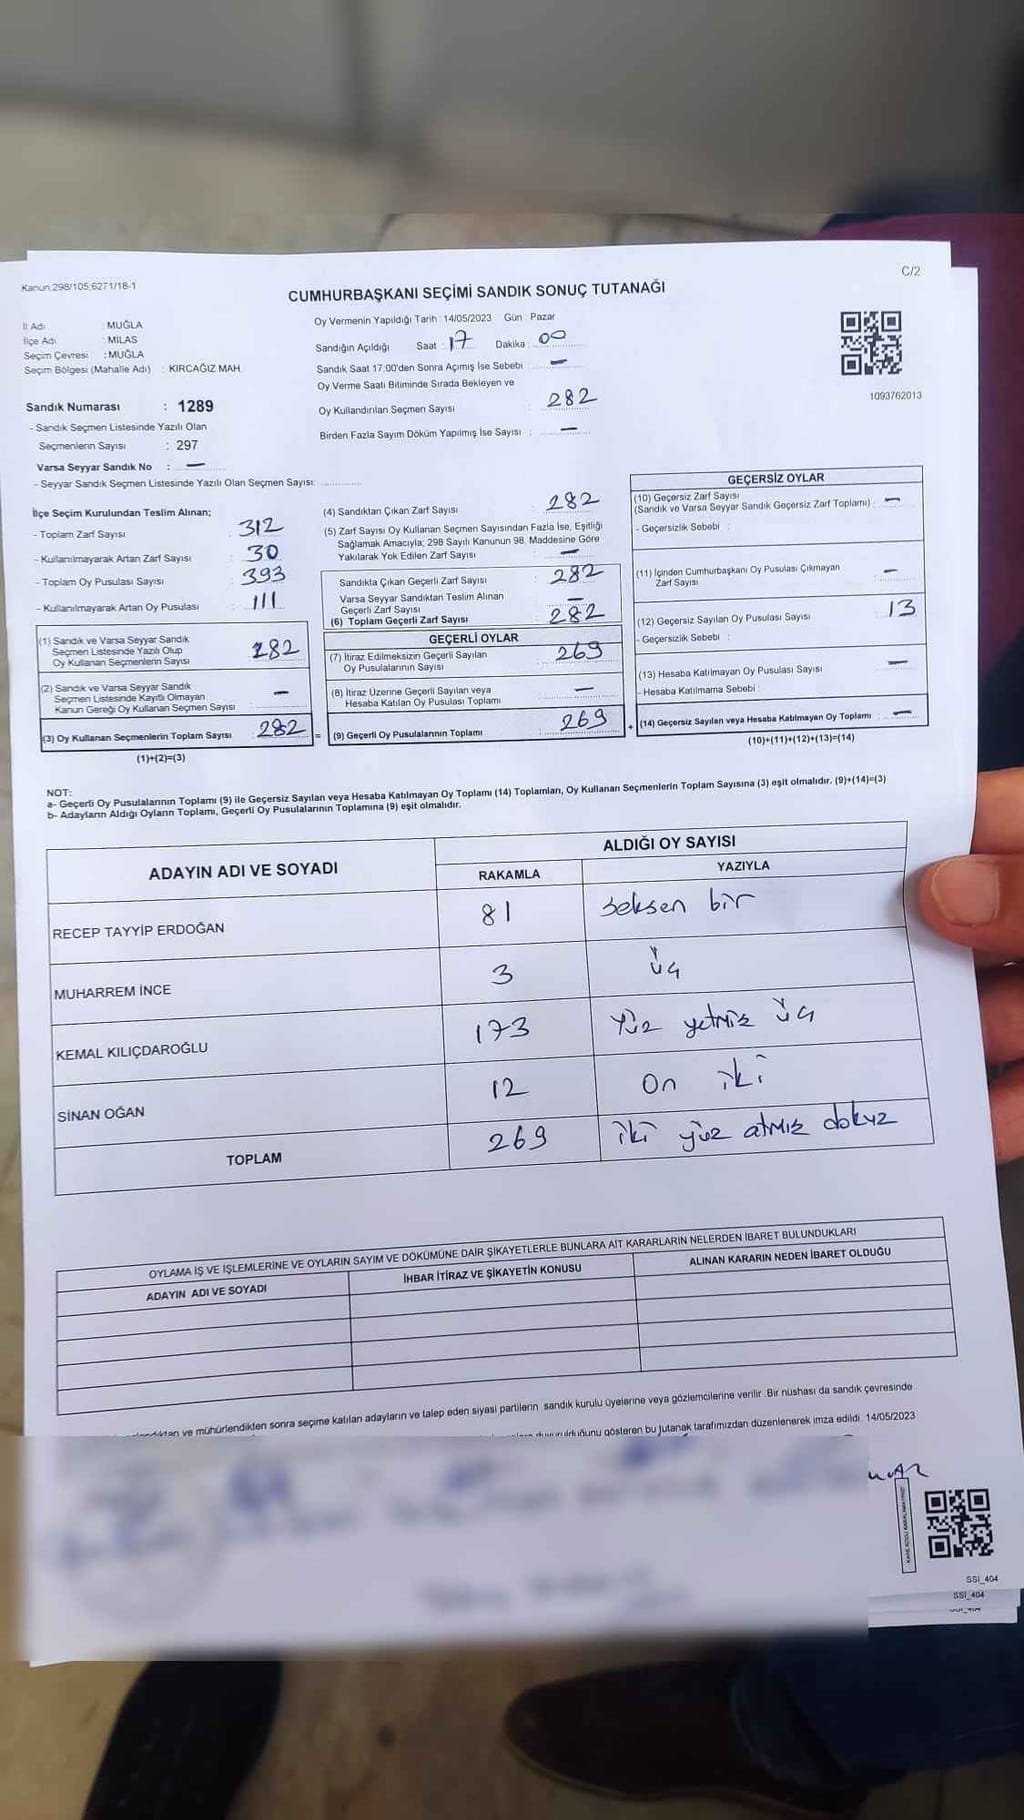 Kanun:298/105;6271/18-1
C/2
CUMHURBAŞKANI SEÇİMİ SANDIK SONUÇ TUTANAĞI
İl Adı : MUĞLA
İlçe Adı : MİLAS
Seçim Çevresi : MUĞLA
Seçim Bölgesi (Mahalle Adı) : KIRCAĞIZ MAH.
Sandık Numarası : 1289
- Sandık Seçmen Listesinde Yazılı Olan
Seçmenlerin Sayısı : 297
Varsa Seyyar Sandık No : —
- Seyyar Sandık Seçmen Listesinde Yazılı Olan Seçmen Sayısı:
Oy Vermenin Yapıldığı Tarih : 14/05/2023 Gün : Pazar
Sandığın Açıldığı Saat : 17 Dakika : 00
Sandık Saat 17.00'den Sonra Açılmış İse Sebebi : —
Oy Verme Saati Bitiminde Sırada Bekleyen ve
Oy Kullandırılan Seçmen Sayısı : 282
Birden Fazla Sayım Döküm Yapılmış İse Sayısı : —
1093762013
İlçe Seçim Kurulundan Teslim Alınan;
- Toplam Zarf Sayısı : 312
- Kullanılmayarak Artan Zarf Sayısı : 30
- Toplam Oy Pusulası Sayısı : 393
- Kullanılmayarak Artan Oy Pusulası : 111
(1) Sandık ve Varsa Seyyar Sandık
Seçmen Listesinde Yazılı Olup
Oy Kullanan Seçmenlerin Sayısı : 282
(2) Sandık ve Varsa Seyyar Sandık
Seçmen Listesinde Kayıtlı Olmayan
Kanun Gereği Oy Kullanan Seçmen Sayısı : —
(3) Oy Kullanan Seçmenlerin Toplam Sayısı : 282
(1)+(2)=(3)
(4) Sandıktan Çıkan Zarf Sayısı : 282
(5) Zarf Sayısı Oy Kullanan Seçmen Sayısından Fazla İse, Eşitliği
Sağlamak Amacıyla; 298 Sayılı Kanunun 98. Maddesine Göre
Yakılarak Yok Edilen Zarf Sayısı : —
Sandıkta Çıkan Geçerli Zarf Sayısı : 282
Varsa Seyyar Sandıktan Teslim Alınan
Geçerli Zarf Sayısı : —
(6) Toplam Geçerli Zarf Sayısı : 282
GEÇERLİ OYLAR
(7) İtiraz Edilmeksizin Geçerli Sayılan
Oy Pusulalarının Sayısı : 269
(8) İtiraz Üzerine Geçerli Sayılan veya
Hesaba Katılan Oy Pusulası Toplamı : —
= (9) Geçerli Oy Pusulalarının Toplamı : 269
GEÇERSİZ OYLAR
(10) Geçersiz Zarf Sayısı
(Sandık ve Varsa Seyyar Sandık Geçersiz Zarf Toplamı) : —
- Geçersizlik Sebebi :
(11) İçinden Cumhurbaşkanı Oy Pusulası Çıkmayan
Zarf Sayısı : —
(12) Geçersiz Sayılan Oy Pusulası Sayısı : 13
- Geçersizlik Sebebi :
(13) Hesaba Katılmayan Oy Pusulası Sayısı : —
- Hesaba Katılmama Sebebi :
+ (14) Geçersiz Sayılan veya Hesaba Katılmayan Oy Toplamı : —
(10)+(11)+(12)+(13)=(14)
NOT:
a- Geçerli Oy Pusulalarının Toplamı (9) ile Geçersiz Sayılan veya Hesaba Katılmayan Oy Toplamı (14) Toplamları, Oy Kullanan Seçmenlerin Toplam Sayısına (3) eşit olmalıdır. (9)+(14)=(3)
b- Adayların Aldığı Oyların Toplamı, Geçerli Oy Pusulalarının Toplamına (9) eşit olmalıdır.
ADAYIN ADI VE SOYADI
ALDIĞI OY SAYISI
RAKAMLA YAZIYLA
RECEP TAYYİP ERDOĞAN 81 seksen bir
MUHARREM İNCE 3 üç
KEMAL KILIÇDAROĞLU 173 Yüz yetmiş üç
SİNAN OĞAN 12 On iki
TOPLAM 269 iki yüz atmış dokuz
OYLAMA İŞ VE İŞLEMLERİNE VE OYLARIN SAYIM VE DÖKÜMÜNE DAİR ŞİKAYETLERLE BUNLARA AİT KARARLARIN NELERDEN İBARET BULUNDUKLARI
ADAYIN ADI VE SOYADI İHBAR İTİRAZ VE ŞİKAYETİN KONUSU ALINAN KARARIN NEDEN İBARET OLDUĞU
ve mühürlendikten sonra seçime katılan adayların ve talep eden siyasi partilerin sandık kurulu üyelerine veya gözlemcilerine verilir. Bir nüshası da sandık çevresinde
duyurulduğunu gösteren bu tutanak tarafımızdan düzenlenerek imza edildi 14/05/2023
SSI_404
SSI_404